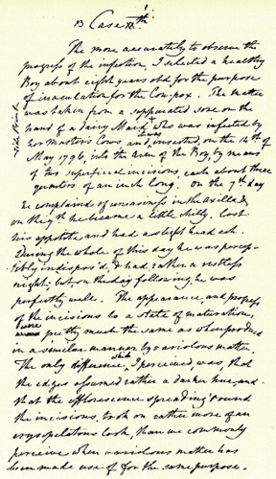 B Case th
The more accurately to observe the
progress of the infection, I selected a healthy
Boy about eight years old for the purpose
of inoculation for the Cow-pox. The matter
was taken from a suppurated sore on the
hand of a dairy Maid + who was infected by
her Masters Cows and inserted, on the 14th of
May 1796, into the arm of the Boy, by means
of two superficial incisions, each about three
quarters of an inch long. On the 7th day
he complained of uneasiness in the axilla &
on the 9th he became a little chilly, lost
his appetite and had a slight head ach.
During the whole of this day he was percep-
tibly indispos'd, & had rather a restless
night; but on the day following he was
perfectly well. The appearance and progress
of the incisions to a state of maturation,
were pretty much the same as when produced
in a similar manner by variolous matter.
The only difference which I perceived, was, that
the edges assumed rather a darker hue, and
that the efflorescence spreading round
the incisions, took on rather more of an
erysipelatous look, than we commonly
perceive when variolous matter has
been made use of for the same purpose.